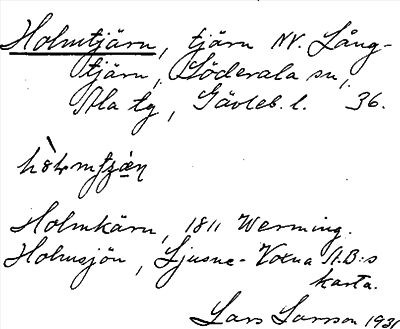 Holmtjärn, tjärn NV. Lång-
tjärn, Söderala sn,
Ala tg, Gävleb. l. 36.
Holmkärn, 1811 Werming.
Holmsjön, Ljusne-Voxna A.B:s
karta.
Lars Larsson 1931